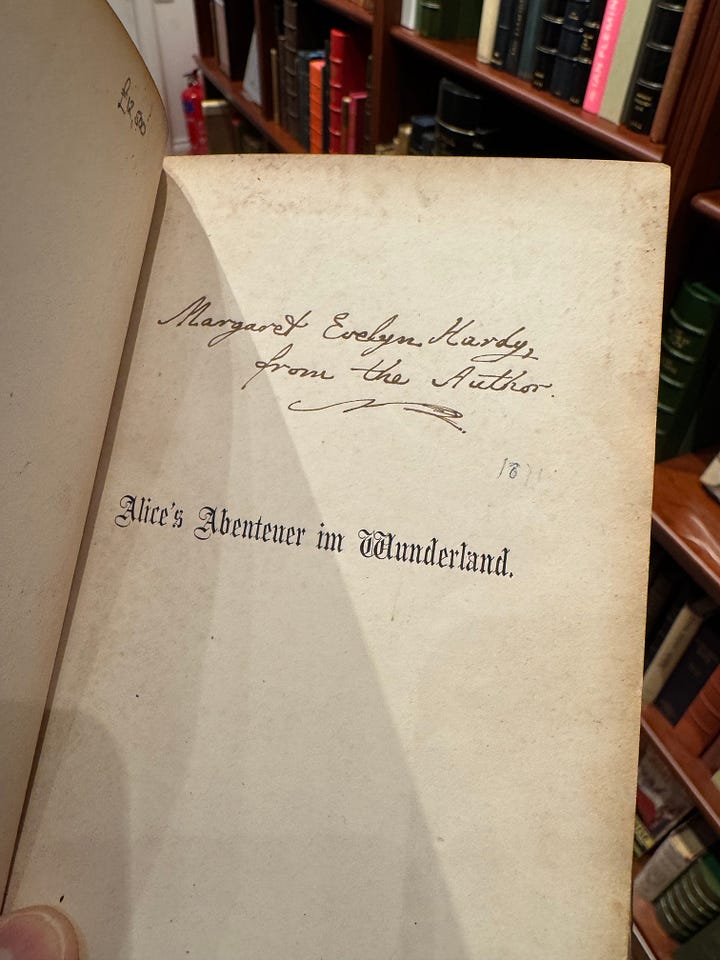 £12,500
Margaret Evelyn Hardy,
from the Author.
1871
Alice's Abenteuer im Wunderland.
IAN FLEMING